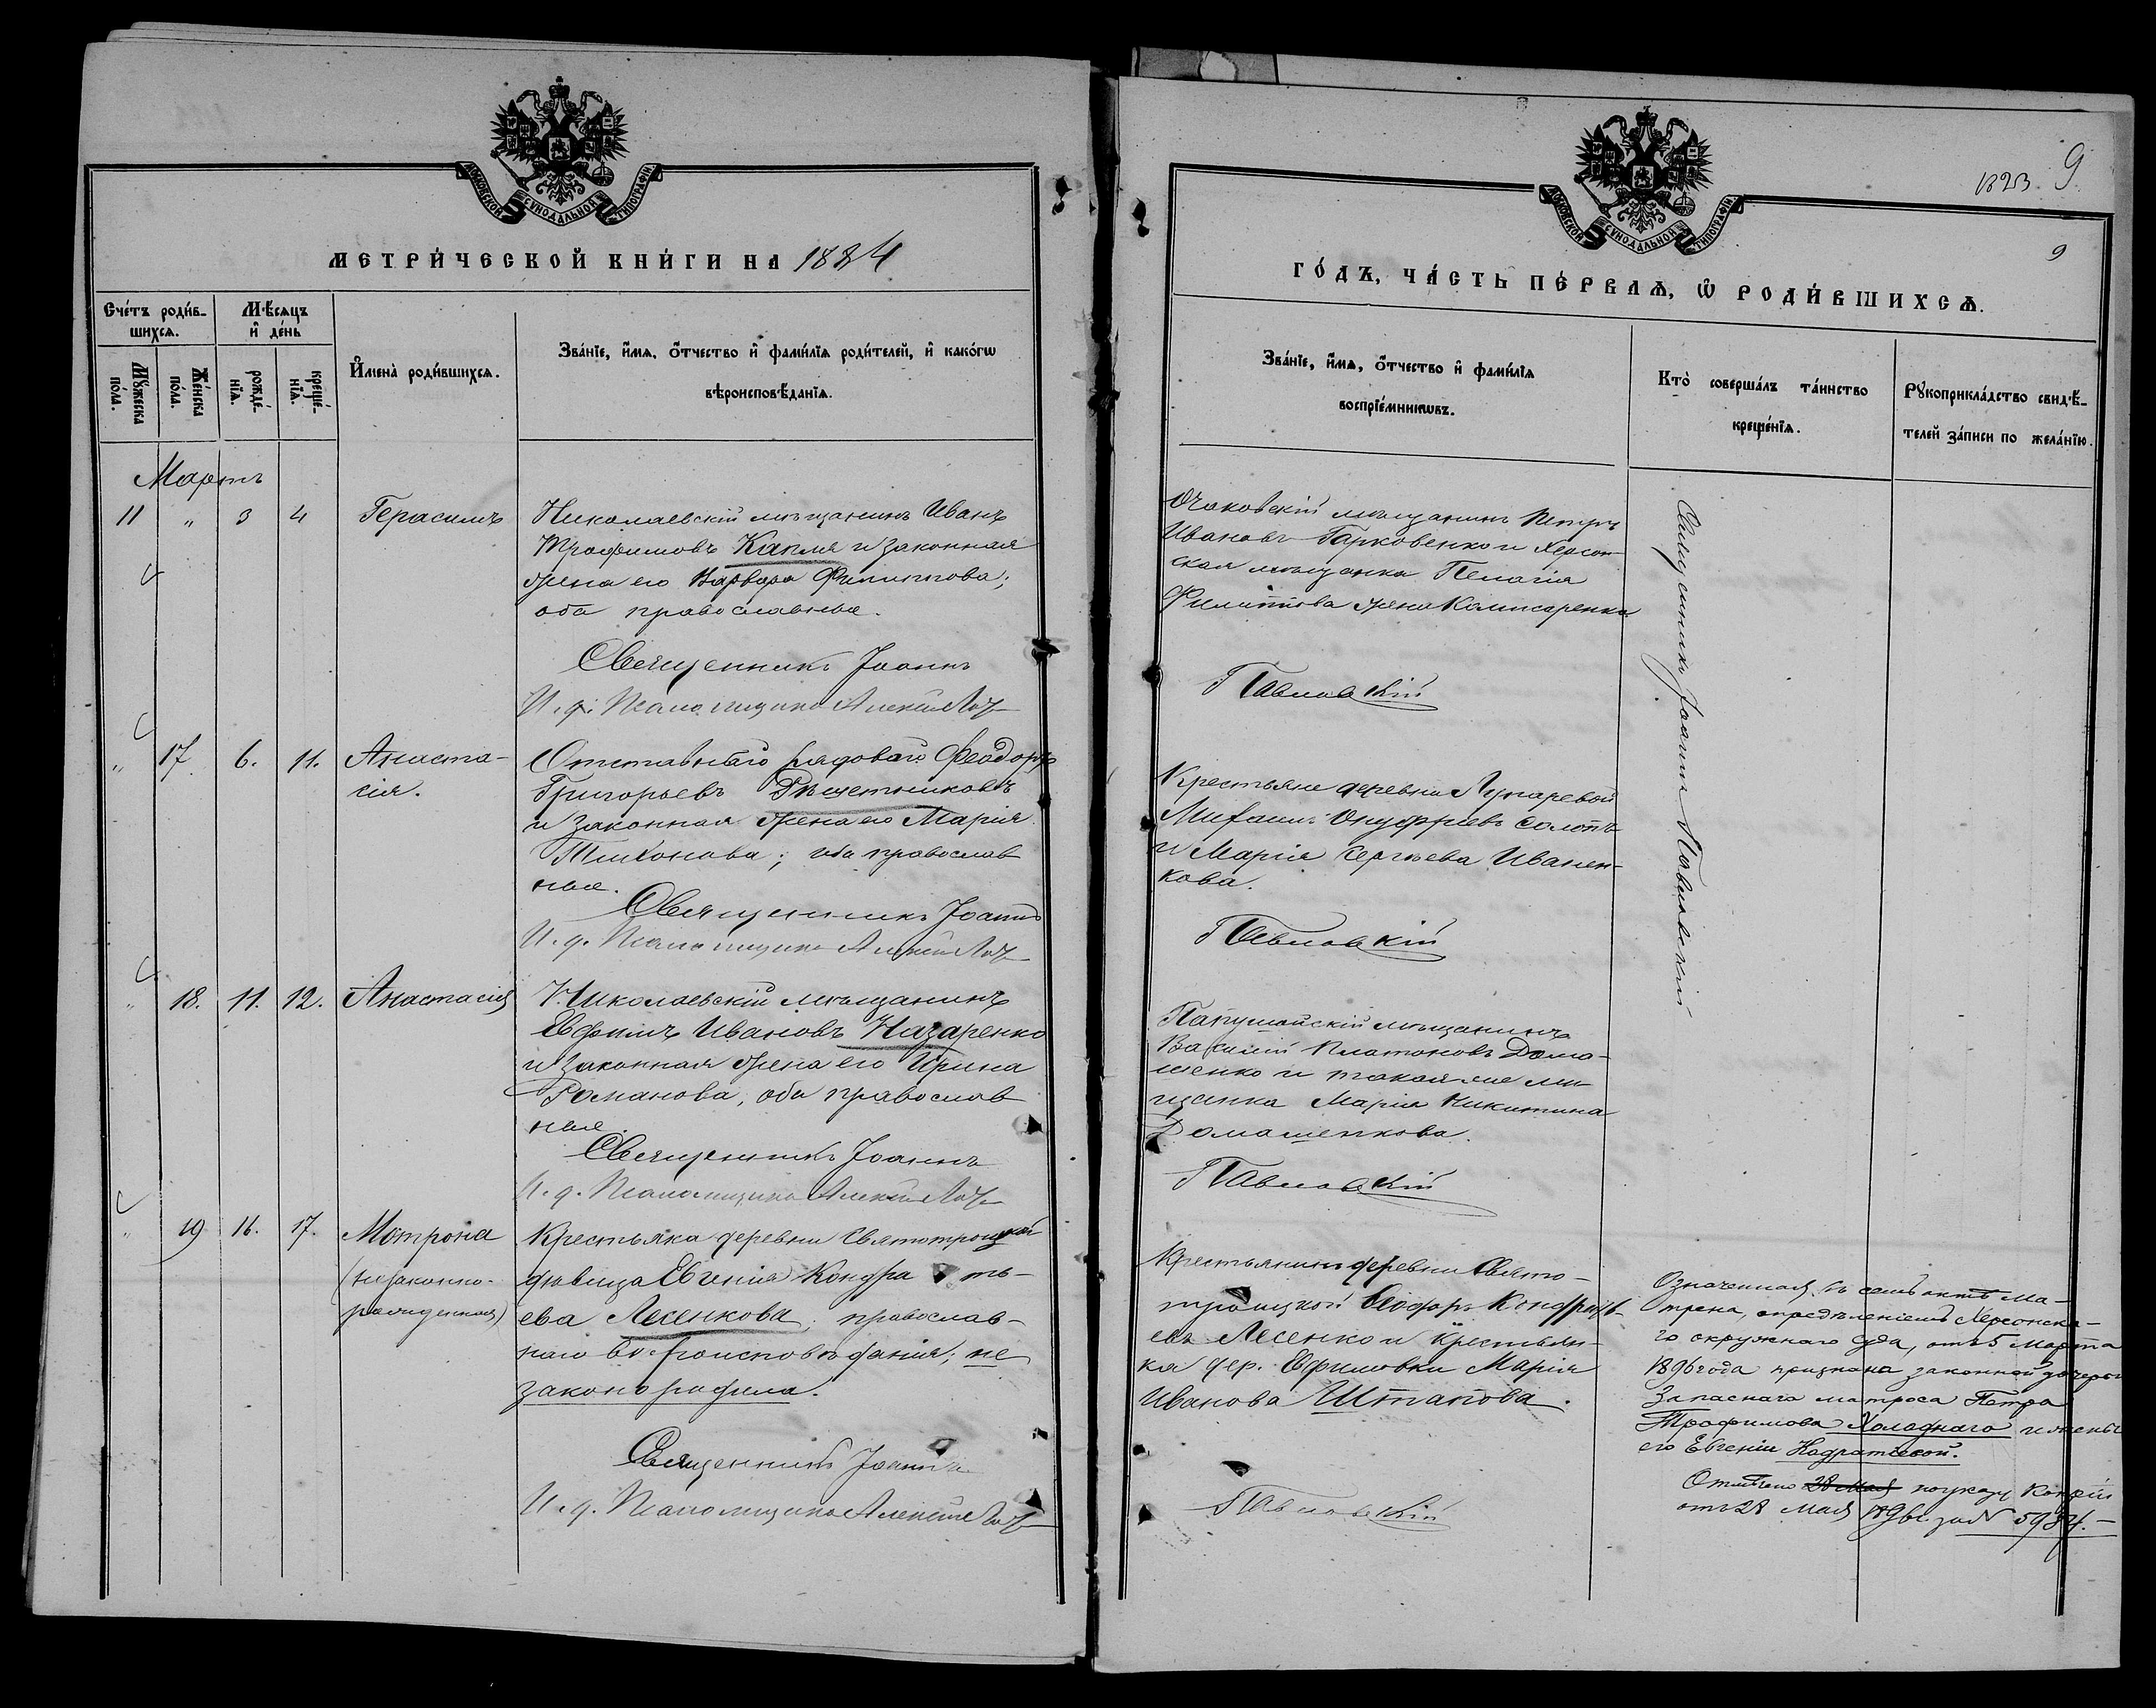 МОСКОВСКОЙ СѴНОДАЛЬНОЙ ТИПОГРАФІИ
МЕТРИ́ЧЕСКОЙ КНИ́ГИ НА 1884
Сче́тъ роди́в-
шихсѧ.
Мѣ́сѧцъ
и҆ де́нь
И҆мена̀ роди́вшихсѧ.
Зва́нїе, и҆́мѧ, ѻ҆́тчество и҆ фами́лїѧ роди́телей, и҆ како́гѡ
вѣроисповѣ́данїѧ.
Мꙋ́жеска
по́ла.
Же́нска
по́ла.
рожде́-
нїѧ.
креще́-
нїѧ.
Мартъ
11 " 3 4 Герасимъ
Николаевскій мѣщанинъ Иванъ
Трофимовъ Капля и законная
жена его Варвара Филиппова;
оба православные.
Священникъ Іоаннъ
И. д. Псаломщика Алексѣй
" 17. 6. 11. Анаста-
сія.
Отставной рядовой Ѳеодоръ
Григорьевъ Рѣшетниковъ
и законная жена его Марія
Тихонова; оба православ
ные.
Священникъ Іоаннъ
И. д. Псаломщика Алексѣй
" 18. 11. 12. Анастасія
Николаевскій мѣщанинъ
Евфимъ Ивановъ Назаренко
и законная жена его Ирина
Романова, оба православ
ные.
Священникъ Іоаннъ
И. д. Псаломщика Алексѣй
" 19 16. 17. Мотрона
(незаконно-
рожденная)
Крестьяка деревни Святотроицкой
дѣвица Евгенія Кондра ть-
ева Лесенкова; православ-
наго вѣроисповѣданія; не
законорожден.
Священникъ Іоаннъ
И. д. Псаломщика Алексѣй
1823. 9
9
МОСКОВСКОЙ СѴНОДАЛЬНОЙ ТИПОГРАФІИ
ГО́ДЪ, ЧА́СТЬ ПЕ́РВАѦ, Ѡ҆ РОДИ́ВШИХСѦ.
Зва́нїе, и҆́мѧ, ѻ҆́тчество и҆ фами́лїѧ
воспрїе́мникѡвъ.
Кто̀ соверша́лъ та́инство
креще́нїѧ.
Рꙋкоприкла́дство свидѣ́-
телей за́писи по жела́нїю.
Очаковскій мѣщанинъ Петръ
Ивановъ Гарковенко и Херсон-
ская мѣщанка Пелагія
Филиппова жена Комисаренка.
Павловскій
Священникъ Іоаннъ Павловскій
Крестьяне деревни Лупаревой
Михаилъ Онуфріевъ Солопъ
и Марія Сергѣева Иванен-
кова.
Павловскій
мѣщанинъ
Василій Платоновъ Дома-
шенко и такая же мѣ
щанка Марія Никитина
Домашенкова.
Павловскій
Крестьянинъ деревни Свято-
троицкой Ѳеодоръ Кондрать-
евъ Лесенко и крестьян-
ка дер. Ефимовки Марія
Иванова Штапова.
Павловскій
Означенная въ семъ актѣ Ма-
трона, опредѣленіемъ Херсонска-
го окружнаго суда, отъ 5 Марта
1896 года признана законной дочерью
запаснаго матроса Петра
Трофимова Холоднаго и жены
его Евгеніи Кодратіевой.
Отмѣчено 28 Мая по указу Конс.
отъ 28 Мая 1896 г. за № 5984.—